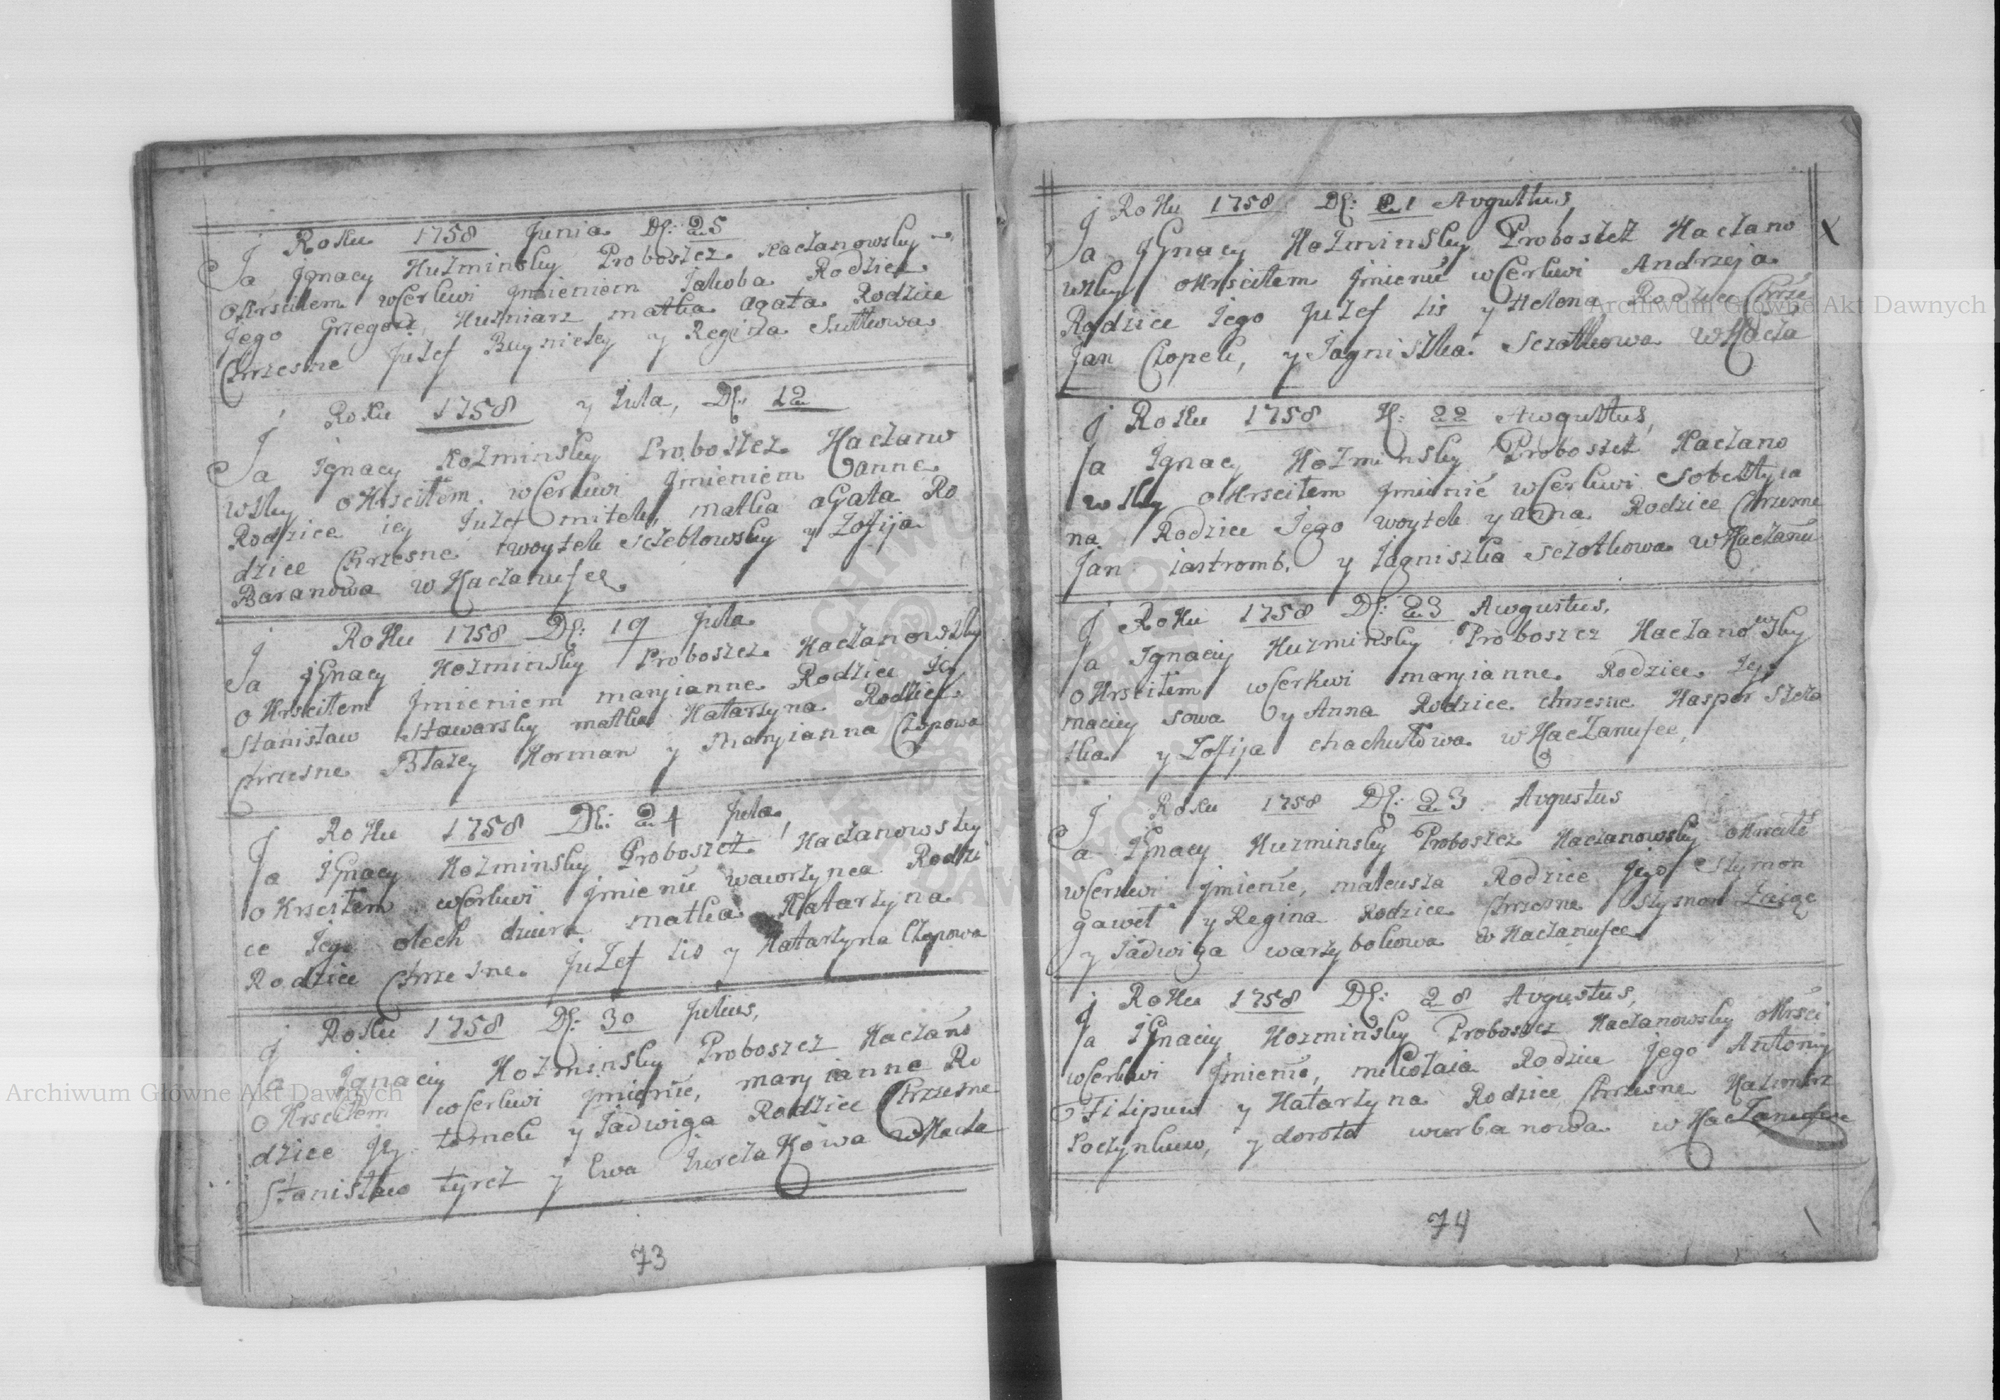 Roku 1758 Junia Dn: 25
Ja Jgnacy Kuzminsky Proboszcz Kaczanowsky
okrscilem wCerkwi Jmieniem Jakoba Rodzice
Jego Grzegorz Kuzniarz matka agata Rodzice
Chrzesne Juzef Buynicky y Regina Sutkowa
Roku 1758 y Jula, Dn: 12
Ja Jgnacy Kozminsky Proboszcz Kaczanw
wsky oKrscilem wCerkwi Jmieniem anne
Rodzice iey Juzef mitek, matka aGata Ro
dzice Chrzesne woytek sczeblowsky y Zofija
Baranowa w Kaczanufce
Roku 1758 Dn: 19 Jula
Ja JGnacy Kozminsky Proboszcz Kaczanowsky
oKrscilem Jmieniem maryianne Rodzice Jey
Stanislaw stawarsky matka Katarzyna Rodzice
Chrzesne Błazey Korman y Maryianna Chopowa
Roku 1758 Dn: 24 Jula,
Ja JGnacy Kozminsky Proboszcz Kaczanowsky
oKrscilem wCerkwi Jmienie wawrzynca Rodzi
ce Jego olech dziura matka Katarzyna
Rodzice Chrzesne Juzef Lis y Katarzyna Chopowa
Roku 1758 Dn: 30 Julius,
Ja Jgnaciy Kozminsky Proboszcz Kaczano
oKrscilem wCerkwi Jmienie, maryianne Ro
dzice Jey tomek y Jadwiga Rodzice Chrzesne
Stanislaw tyrcz y Ewa Jurczakowa wKacza
73
Roku 1758 Dn: 21 Avgustus,
Ja JGnacy Kozminsky Proboszcz Kaczano
wsky oKrscilem Jmienie wCerkwi Andrzeja
Rodzice Jego Juzef Lis y Helena Rodzice Chrze
Jan Clopek, y Jagniszka Sczotkowa wKacza
X
Roku 1758 22 Awgustus,
Ja Jgnacy Kozminsky Proboszcz Kaczano
wsky oKrscilem Jmienie wCerkwi Sobestyia
na Rodzice Jego woytek y anna Rodzice Chrzesne
Jan iastromb. y Jagniszka sczotkowa wKaczanu
Roku 1758 Dn: 23 Awgustus,
Ja Jgnaciy Kuzminsky Proboszcz Kaczanowsky
oKrscilem wCerkwi maryianne Rodzice Jey
maciey sowa y Anna Rodzice chrzesne Kasper Szcza
tka y Zofija chachułowa wKaczanufce,
Roku 1758 Dn: 23 Avgustus
Ja JGnacy Kuzminsky Proboszcz Kaczanowsky okrscile
wCerkwi Jmienie, mateusza Rodzice Jego Szymon
gaweł y Regina Rodzice Chrzesne Szymon
y Jadwiga warzybokowa w Kaczanufce
Roku 1758 Dn: 28 Avgustus,
Ja JGnaciy Kozminsky Proboszcz Kaczanowsky okrsci
wCerkwi Jmienie, mikołaia Rodzice Jego Antoniy
Filipuw y Katarzyna Rodzice Chrzesne Kazimirz
Poczynkuw, y dorota wurbanowa w Kaczanufce
74
Archiwum Główne Akt Dawnych
Archiwum Główne Akt Dawnych